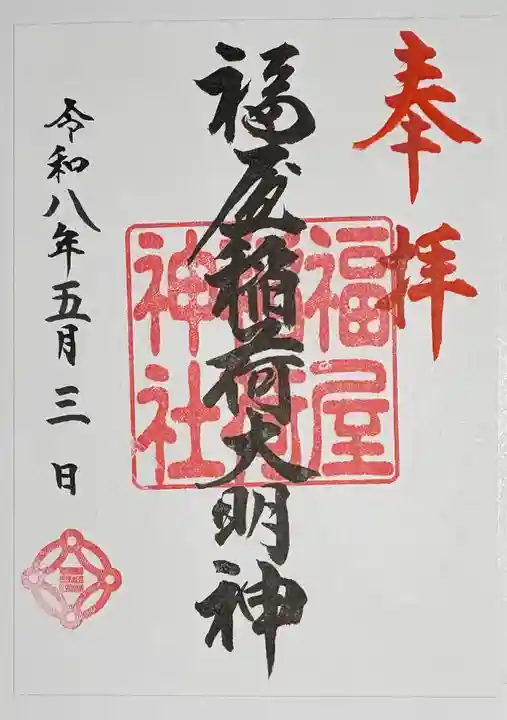 奉拝
福屋稲荷大明神
福屋
稲荷
神社
令和八年五月三日